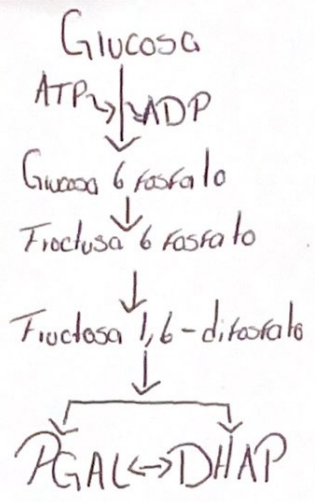 Glucosa
ATP ADP
Glucosa 6 fosfato
Fructusa 6 fosfato
Fructosa 1,6-difosfato
PGAL ↔ DHAP